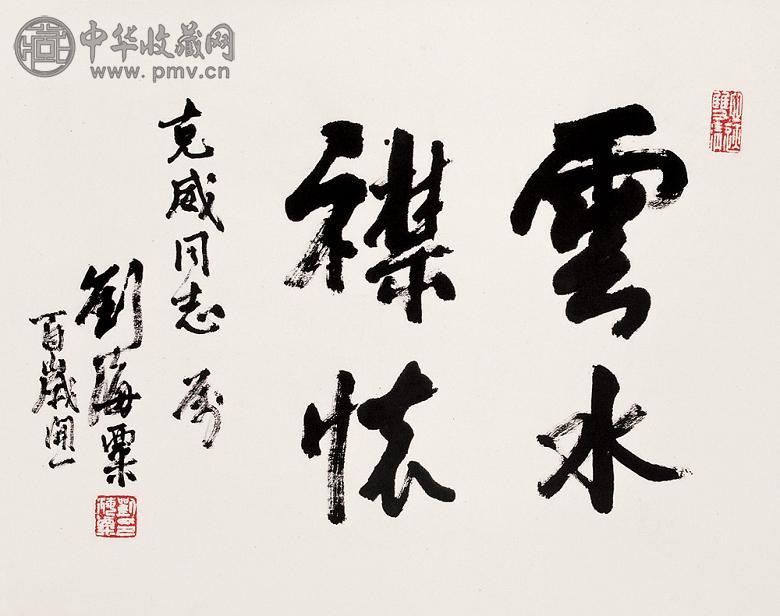 雲水
襟懷
克威同志 属
劉海粟
百歲開一
中华收藏网
www.pmv.cn